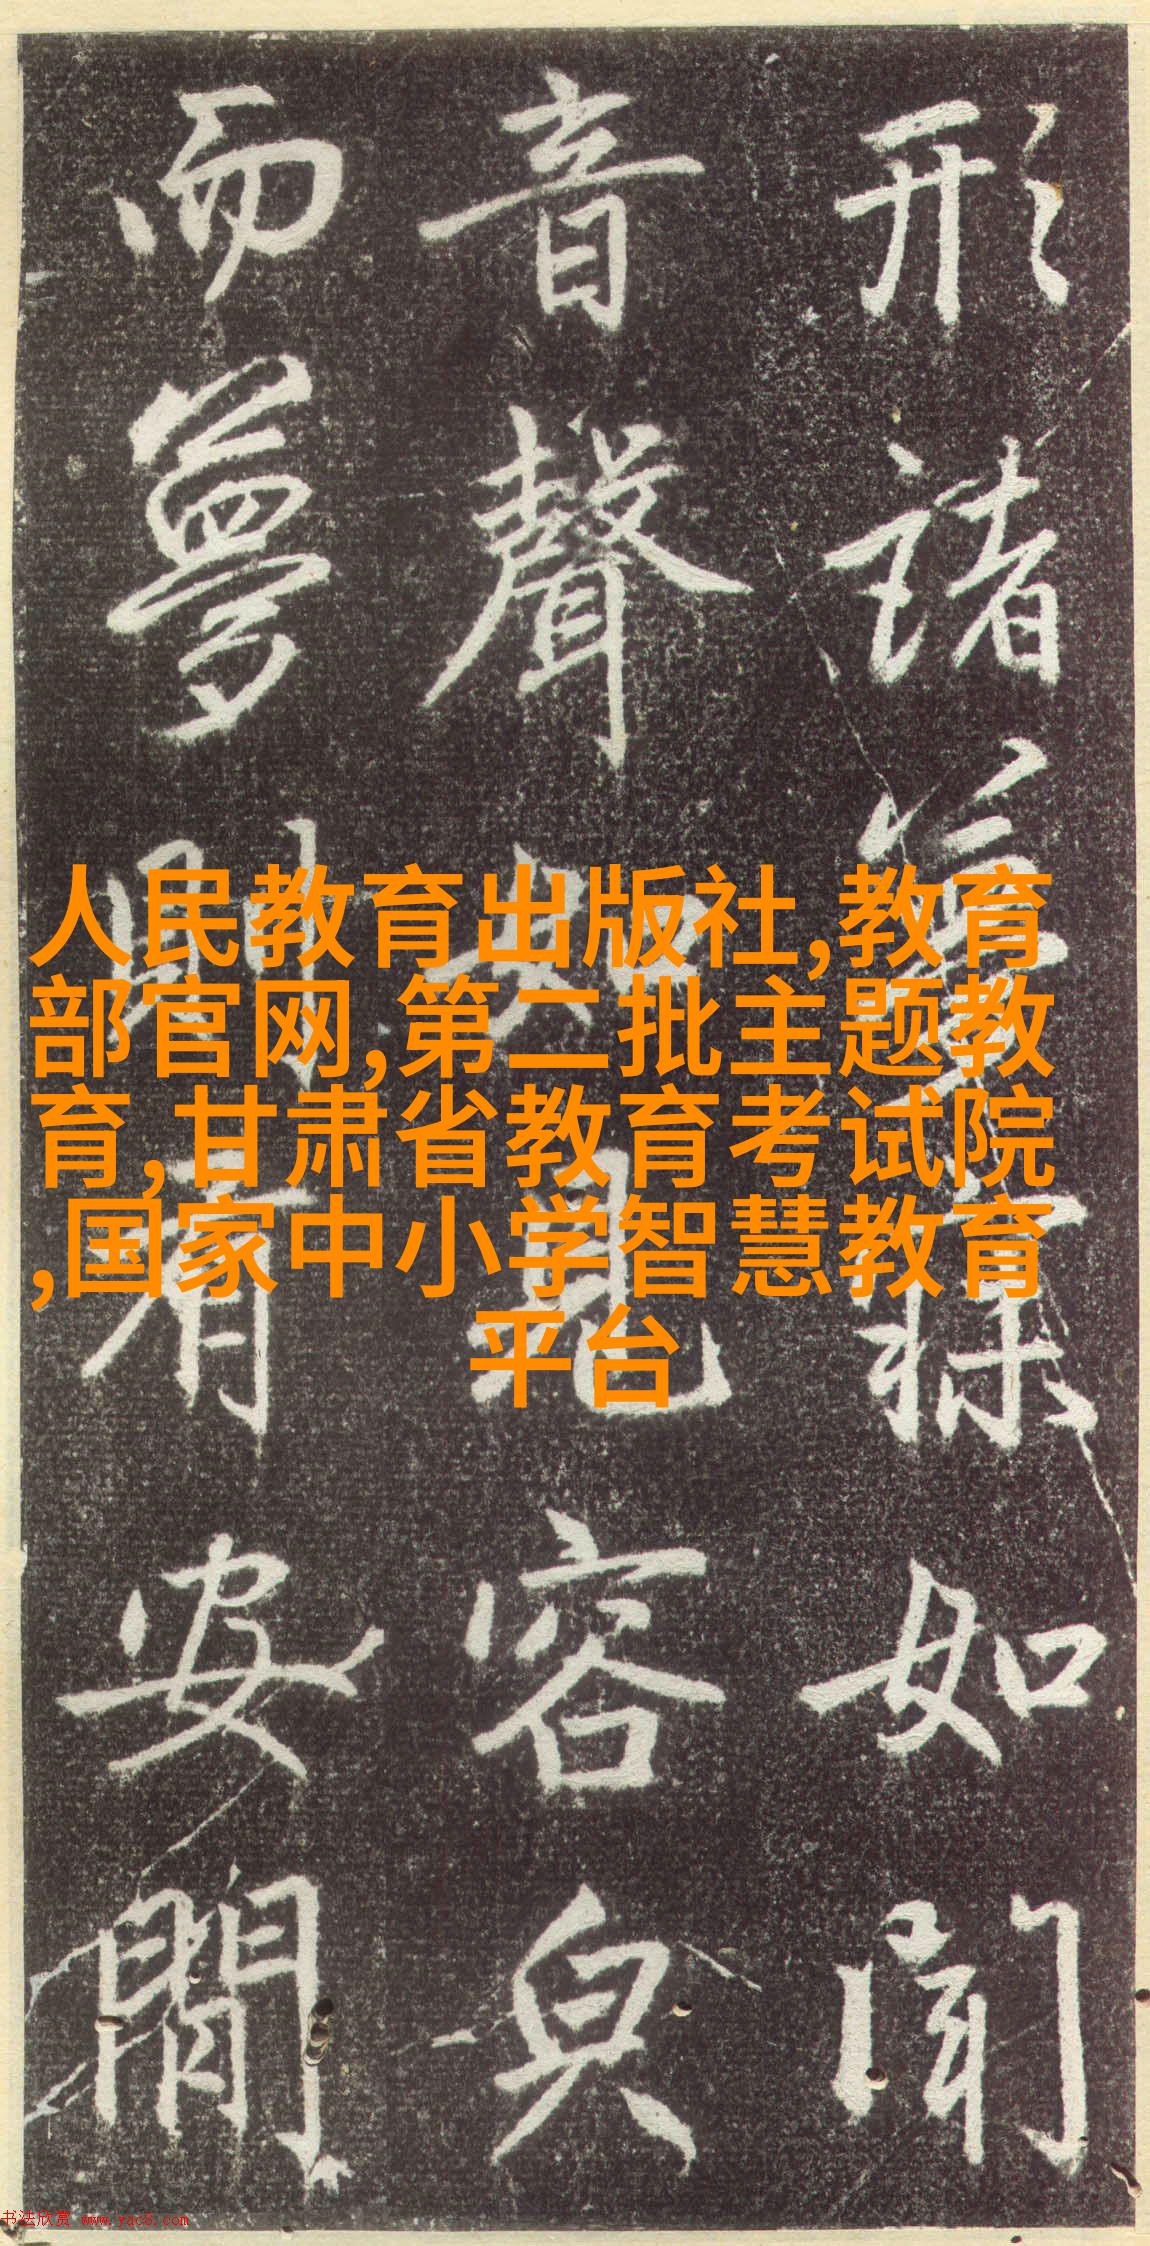 形諸寤寐如聞
音聲如見容皃
而夢則有安閒
人民教育出版社,教育
部官网,第二批主题教
育,甘肃省教育考试院
,国家中小学智慧教育
平台
书法欣赏 www.yac8.com